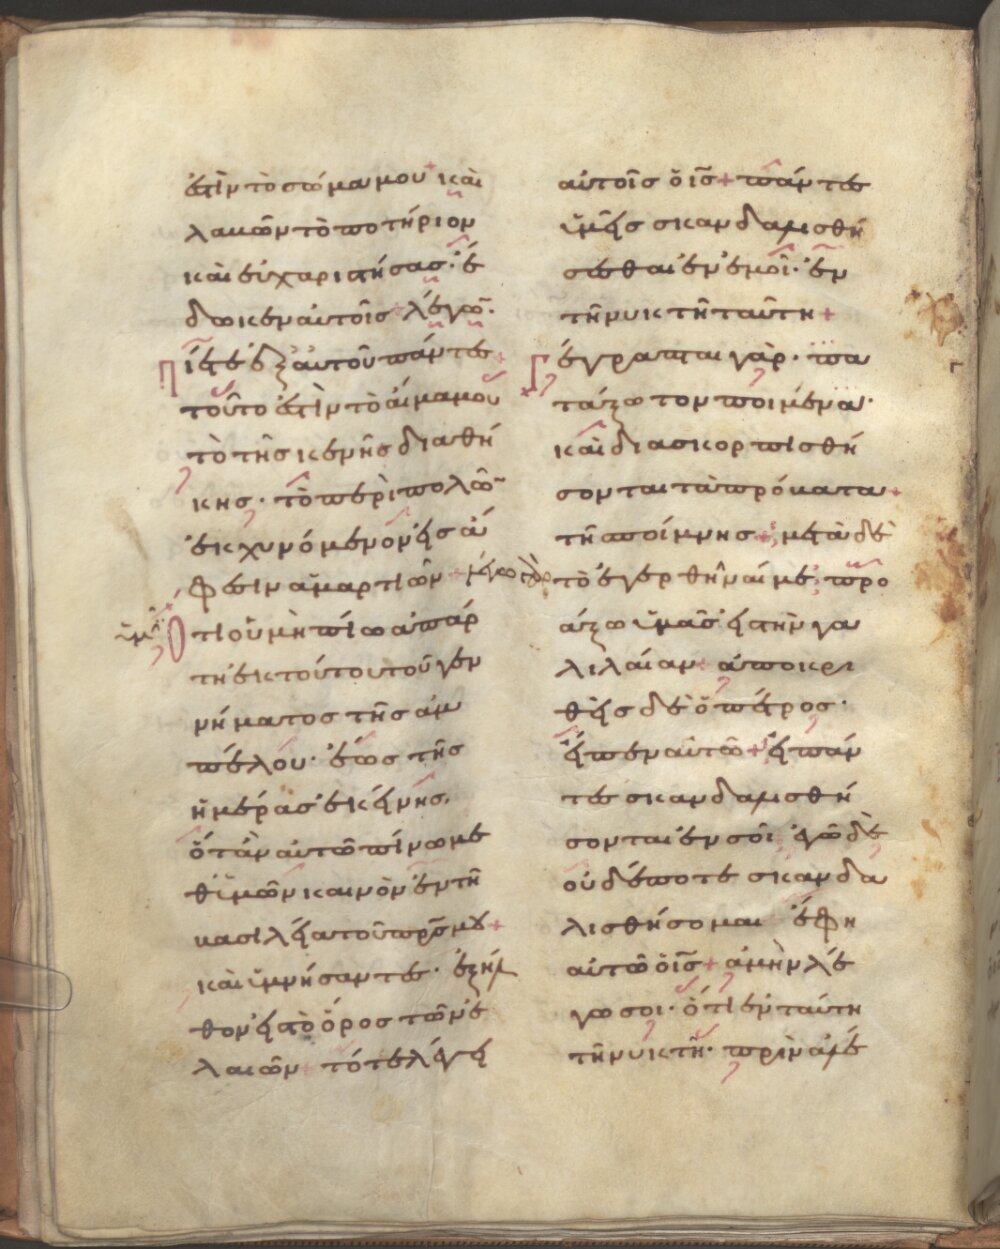 ἐστὶν τὸ σῶμα μου + καὶ
λαβὼν τὸ ποτήριον
καὶ εὐχαριστήσας· ἔ
δωκεν αὐτοῖς λέγω̅·
Πίετε ἐξ αὐτοῦ πάντες +
τοῦτο ἐστὶν τὸ αἷμα μου
τὸ τῆς κενῆς διαθή
κης· τὸ περὶ πολῶ̅
ἐκχυνόμενον εἰς ἄ
φεσιν ἁμαρτιῶν + λέγω δὲ
ὑμῖ̅
Ὅτι οὐ μὴ πίω ἀπάρ
τη ἐκ τούτου τοῦ γεν
νήματος τῆς ἀμ
πέλου· ἕως τῆς
ἡμέρας ἐκείνης·
ὅτὰν αὐτῶ πίνω με
θ' ὑμῶν καινὸν ἐν τῆ
βασιλεία τοῦ π̅ρ̅ς̅ μου +
καὶ ὑμνήσαντες· ἐξῆλ
θον εἰς τὸ ὄρος τῶν ἐ
λαιῶν + τότε λέγει
αὐτοῖς ὁ ι̅ς̅ + πάντες
ὑμεῖς σκανδαλισθή
σεσθαι ἐν ἐμοῖ· ἐν
τῆ νυκτῆ ταύτη +
Γέγραπται γὰρ· πα
τάξω τὸν ποιμένα·
καὶ διασκορπισθή
σονται τὰ πρόβατα +
τῆς ποίμνης + μετὰ δὲ
τὸ ἐγερθῆναί με· προ
άξω ὑμᾶς εἰς τὴν γα
λιλαίαν + ἀποκρι
θεὶς δὲ ὁ πέτρος·
εἶπεν αὐτῶ + εἰ πάν
τες σκανδαλισθή
σονται ἐν σοῖ· ἐγῶ δὲ
οὐδέποτε σκανδα
λισθήσομαι ἔφη
αὐτῶ ὁ ι̅ς̅ + ἀμὴν λέ
γω σοι· ὅτι ἐν ταύτη
τῆ νυκτῆ· πρὶν ἀλέ